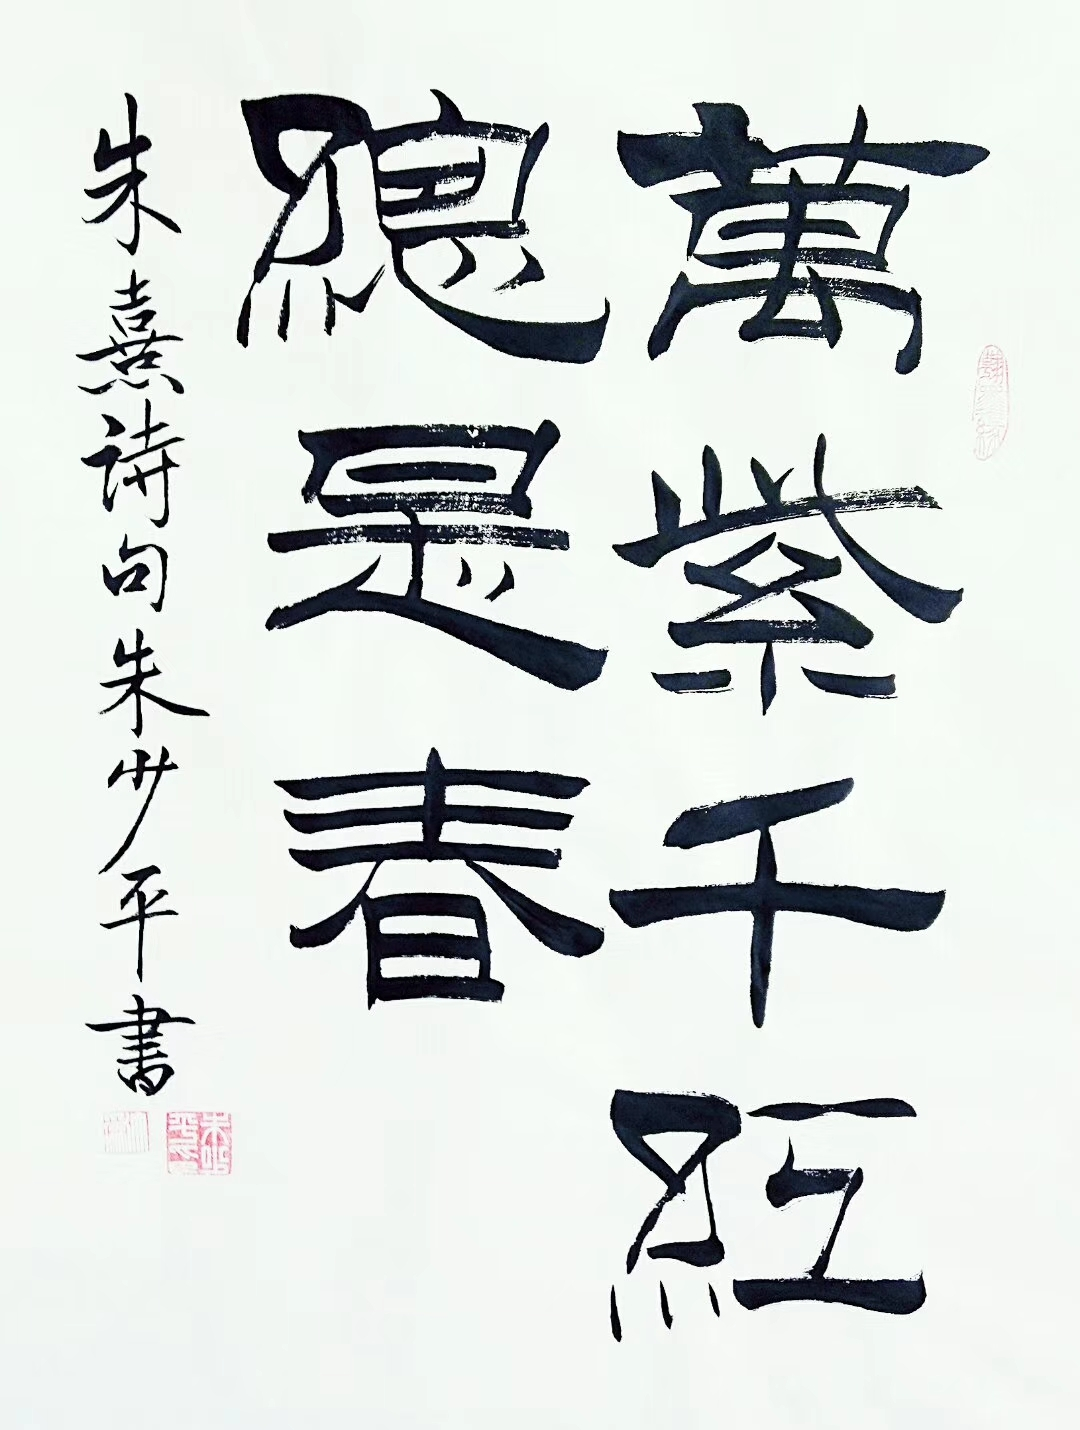 萬紫千紅
總是春
朱熹詩句朱少平書